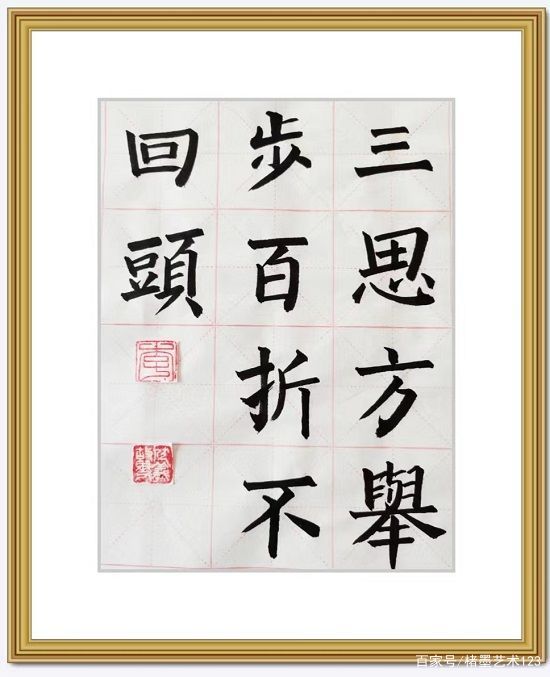 三思方舉
步百折不
回頭
百家号/楮墨艺术123